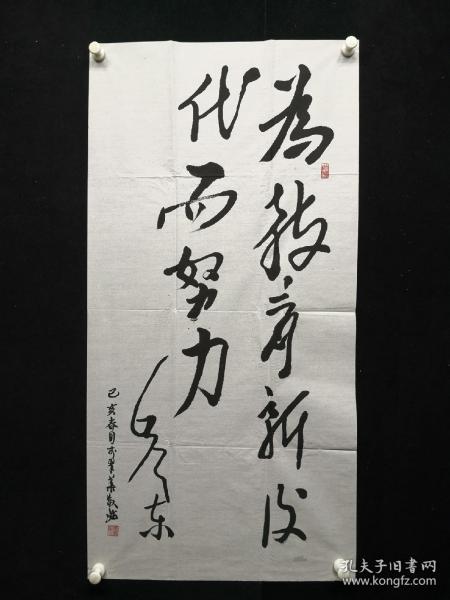 为教育新後
代而努力
泽东
己亥春月
孔夫子旧书网
www.kongfz.com